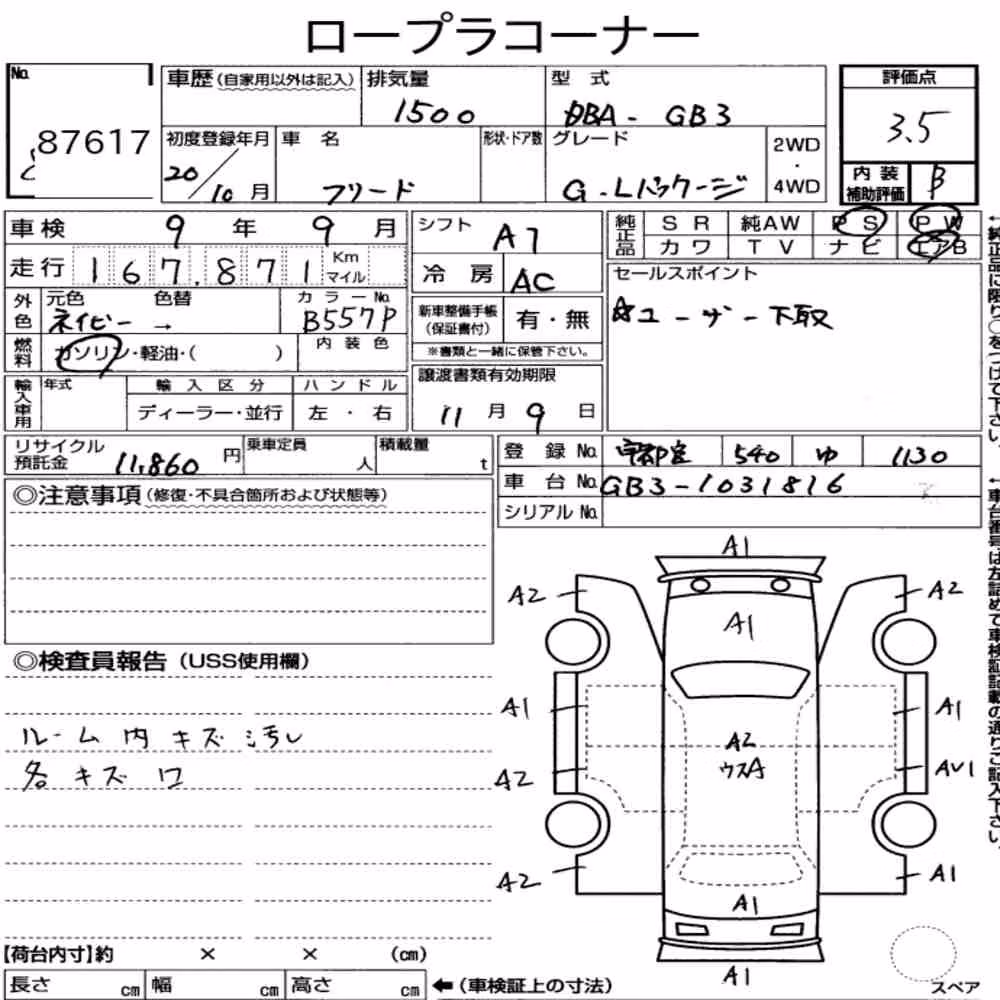 ロープラコーナー
No. 87617
車歴(自家用以外は記入) 排気量 1500 型式 DBA - GB3 評価点 3.5
初度登録年月 20/10月 車名 フリード 形状・ドア数 グレード G・Lパッケージ 2WD・4WD 内装補助評価 B
車検 9年 9月 シフト AT 純正品 SR 純AW PS PW
走行 167,871 Km マイル 冷房 AC カワ TV ナビ エアB
外色 元色 ネイビー 色替 → カラーNo. B557P 新車整備手帳(保証書付) 有・無 セールスポイント
☆ユーザー下取
燃料 ガソリン・軽油・( ) 内装色 ※書類と一緒に保管下さい。
輸入車用 年式 輸入区分 ハンドル 譲渡書類有効期限
ディーラー・並行 左・右 11月9日
リサイクル預託金 11,860円 乗車定員 人 積載量 t 登録No. 宇都宮 540 ゆ 1130
車台No. GB3-1031816
シリアルNo.
◎注意事項(修復・不具合箇所および状態等)
◎検査員報告(USS使用欄)
ルーム内キズ汚し
各キズワ
A1
A2 A2
A1
A1 A1
A2 ウスA
A2 AV1
A2 A1
A1
A1
スペア
【荷台内寸】約 × × (cm)
長さ cm 幅 cm 高さ cm ←(車検証上の寸法)
←純正品に限り○をつけて下さい。
←車台番号は左詰めで車検証記載の通りご記入下さい。